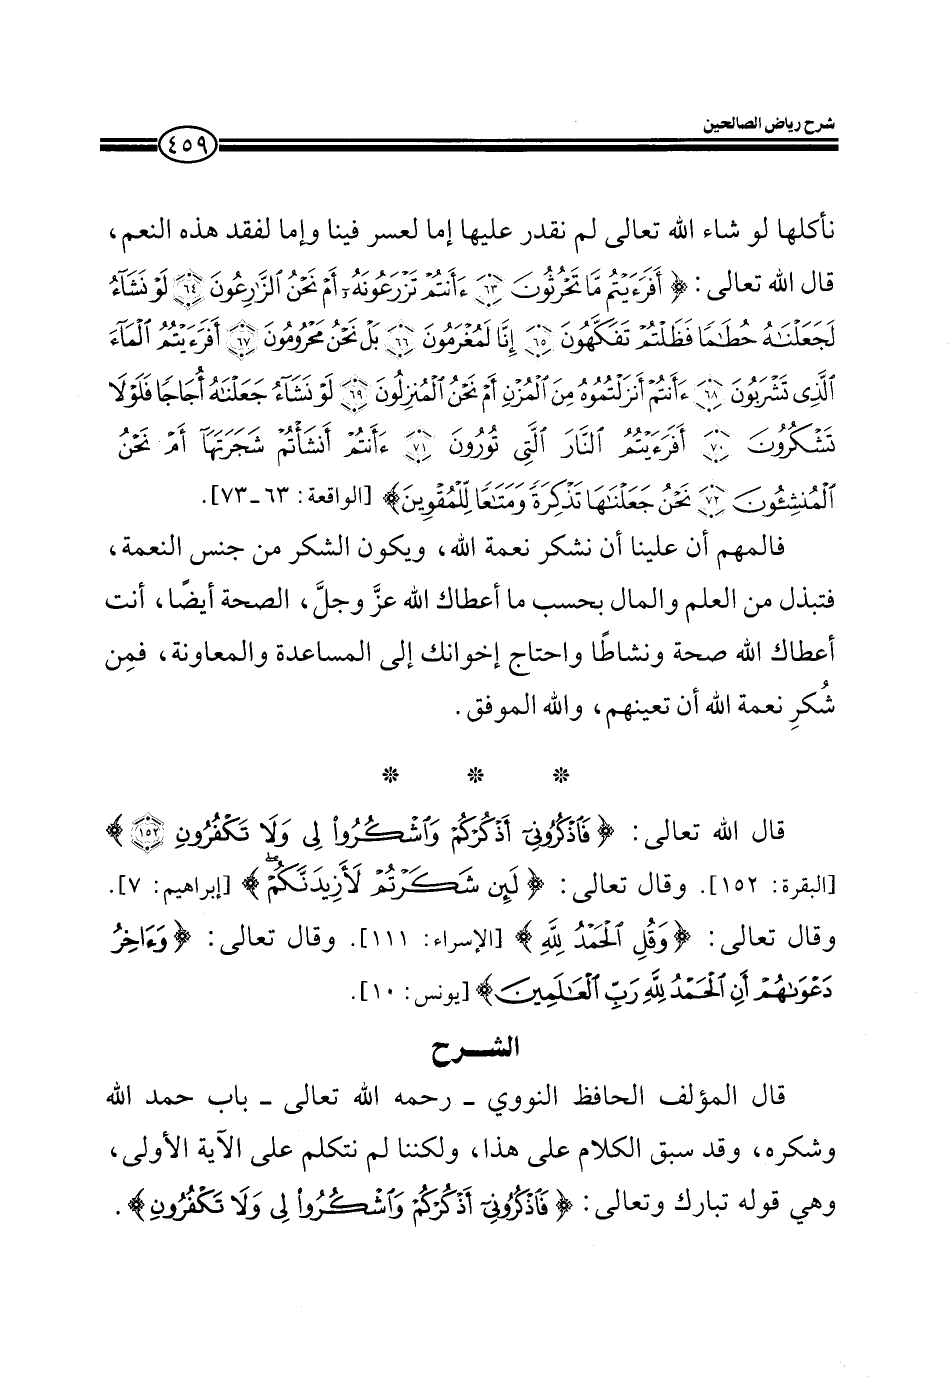 شرح رياض الصالحين
٤٥٩
نأكلها لو شاء الله تعالى لم نقدر عليها إما لعسر فينا وإما لفقد هذه النعم،
قال الله تعالى: ﴿ أَفَرَءَيْتُم مَّا تَحْرُثُونَ ٦٣ ءَأَنتُمْ تَزْرَعُونَهُۥٓ أَمْ نَحْنُ ٱلزَّٰرِعُونَ ٦٤ لَوْ نَشَآءُ
لَجَعَلْنَٰهُ حُطَٰمًا فَظَلْتُمْ تَفَكَّهُونَ ٦٥ إِنَّا لَمُغْرَمُونَ ٦٦ بَلْ نَحْنُ مَحْرُومُونَ ٦٧ أَفَرَءَيْتُمُ ٱلْمَآءَ
ٱلَّذِى تَشْرَبُونَ ٦٨ ءَأَنتُمْ أَنزَلْتُمُوهُ مِنَ ٱلْمُزْنِ أَمْ نَحْنُ ٱلْمُنزِلُونَ ٦٩ لَوْ نَشَآءُ جَعَلْنَٰهُ أُجَاجًا فَلَوْلَا
تَشْكُرُونَ ٧٠ أَفَرَءَيْتُمُ ٱلنَّارَ ٱلَّتِى تُورُونَ ٧١ ءَأَنتُمْ أَنشَأْتُمْ شَجَرَتَهَآ أَمْ نَحْنُ
ٱلْمُنشِـُٔونَ ٧٢ نَحْنُ جَعَلْنَٰهَا تَذْكِرَةً وَمَتَٰعًا لِّلْمُقْوِينَ﴾ [الواقعة: ٦٣ـ٧٣].
فالمهم أن علينا أن نشكر نعمة الله، ويكون الشكر من جنس النعمة،
فتبذل من العلم والمال بحسب ما أعطاك الله عزَّ وجلَّ، الصحة أيضًا، أنت
أعطاك الله صحة ونشاطًا واحتاج إخوانك إلى المساعدة والمعاونة، فمِن
شُكرِ نعمة الله أن تعينهم، والله الموفق.
* * *
قال الله تعالى: ﴿ فَٱذْكُرُونِىٓ أَذْكُرْكُمْ وَٱشْكُرُوا۟ لِى وَلَا تَكْفُرُونِ ١٥٢ ﴾
[البقرة: ١٥٢]. وقال تعالى: ﴿ لَئِن شَكَرْتُمْ لَأَزِيدَنَّكُمْ ۖ ﴾ [إبراهيم: ٧].
وقال تعالى: ﴿وَقُلِ ٱلْحَمْدُ لِلَّهِ ﴾ [الإسراء: ١١١]. وقال تعالى: ﴿ وَءَاخِرُ
دَعْوَىٰهُمْ أَنِ ٱلْحَمْدُ لِلَّهِ رَبِّ ٱلْعَٰلَمِينَ﴾ [يونس: ١٠].
الشـــرح
قال المؤلف الحافظ النووي ـ رحمه الله تعالى ـ باب حمد الله
وشكره، وقد سبق الكلام على هذا، ولكننا لم نتكلم على الآية الأولى،
وهي قوله تبارك وتعالى: ﴿ فَٱذْكُرُونِىٓ أَذْكُرْكُمْ وَٱشْكُرُوا۟ لِى وَلَا تَكْفُرُونِ﴾.